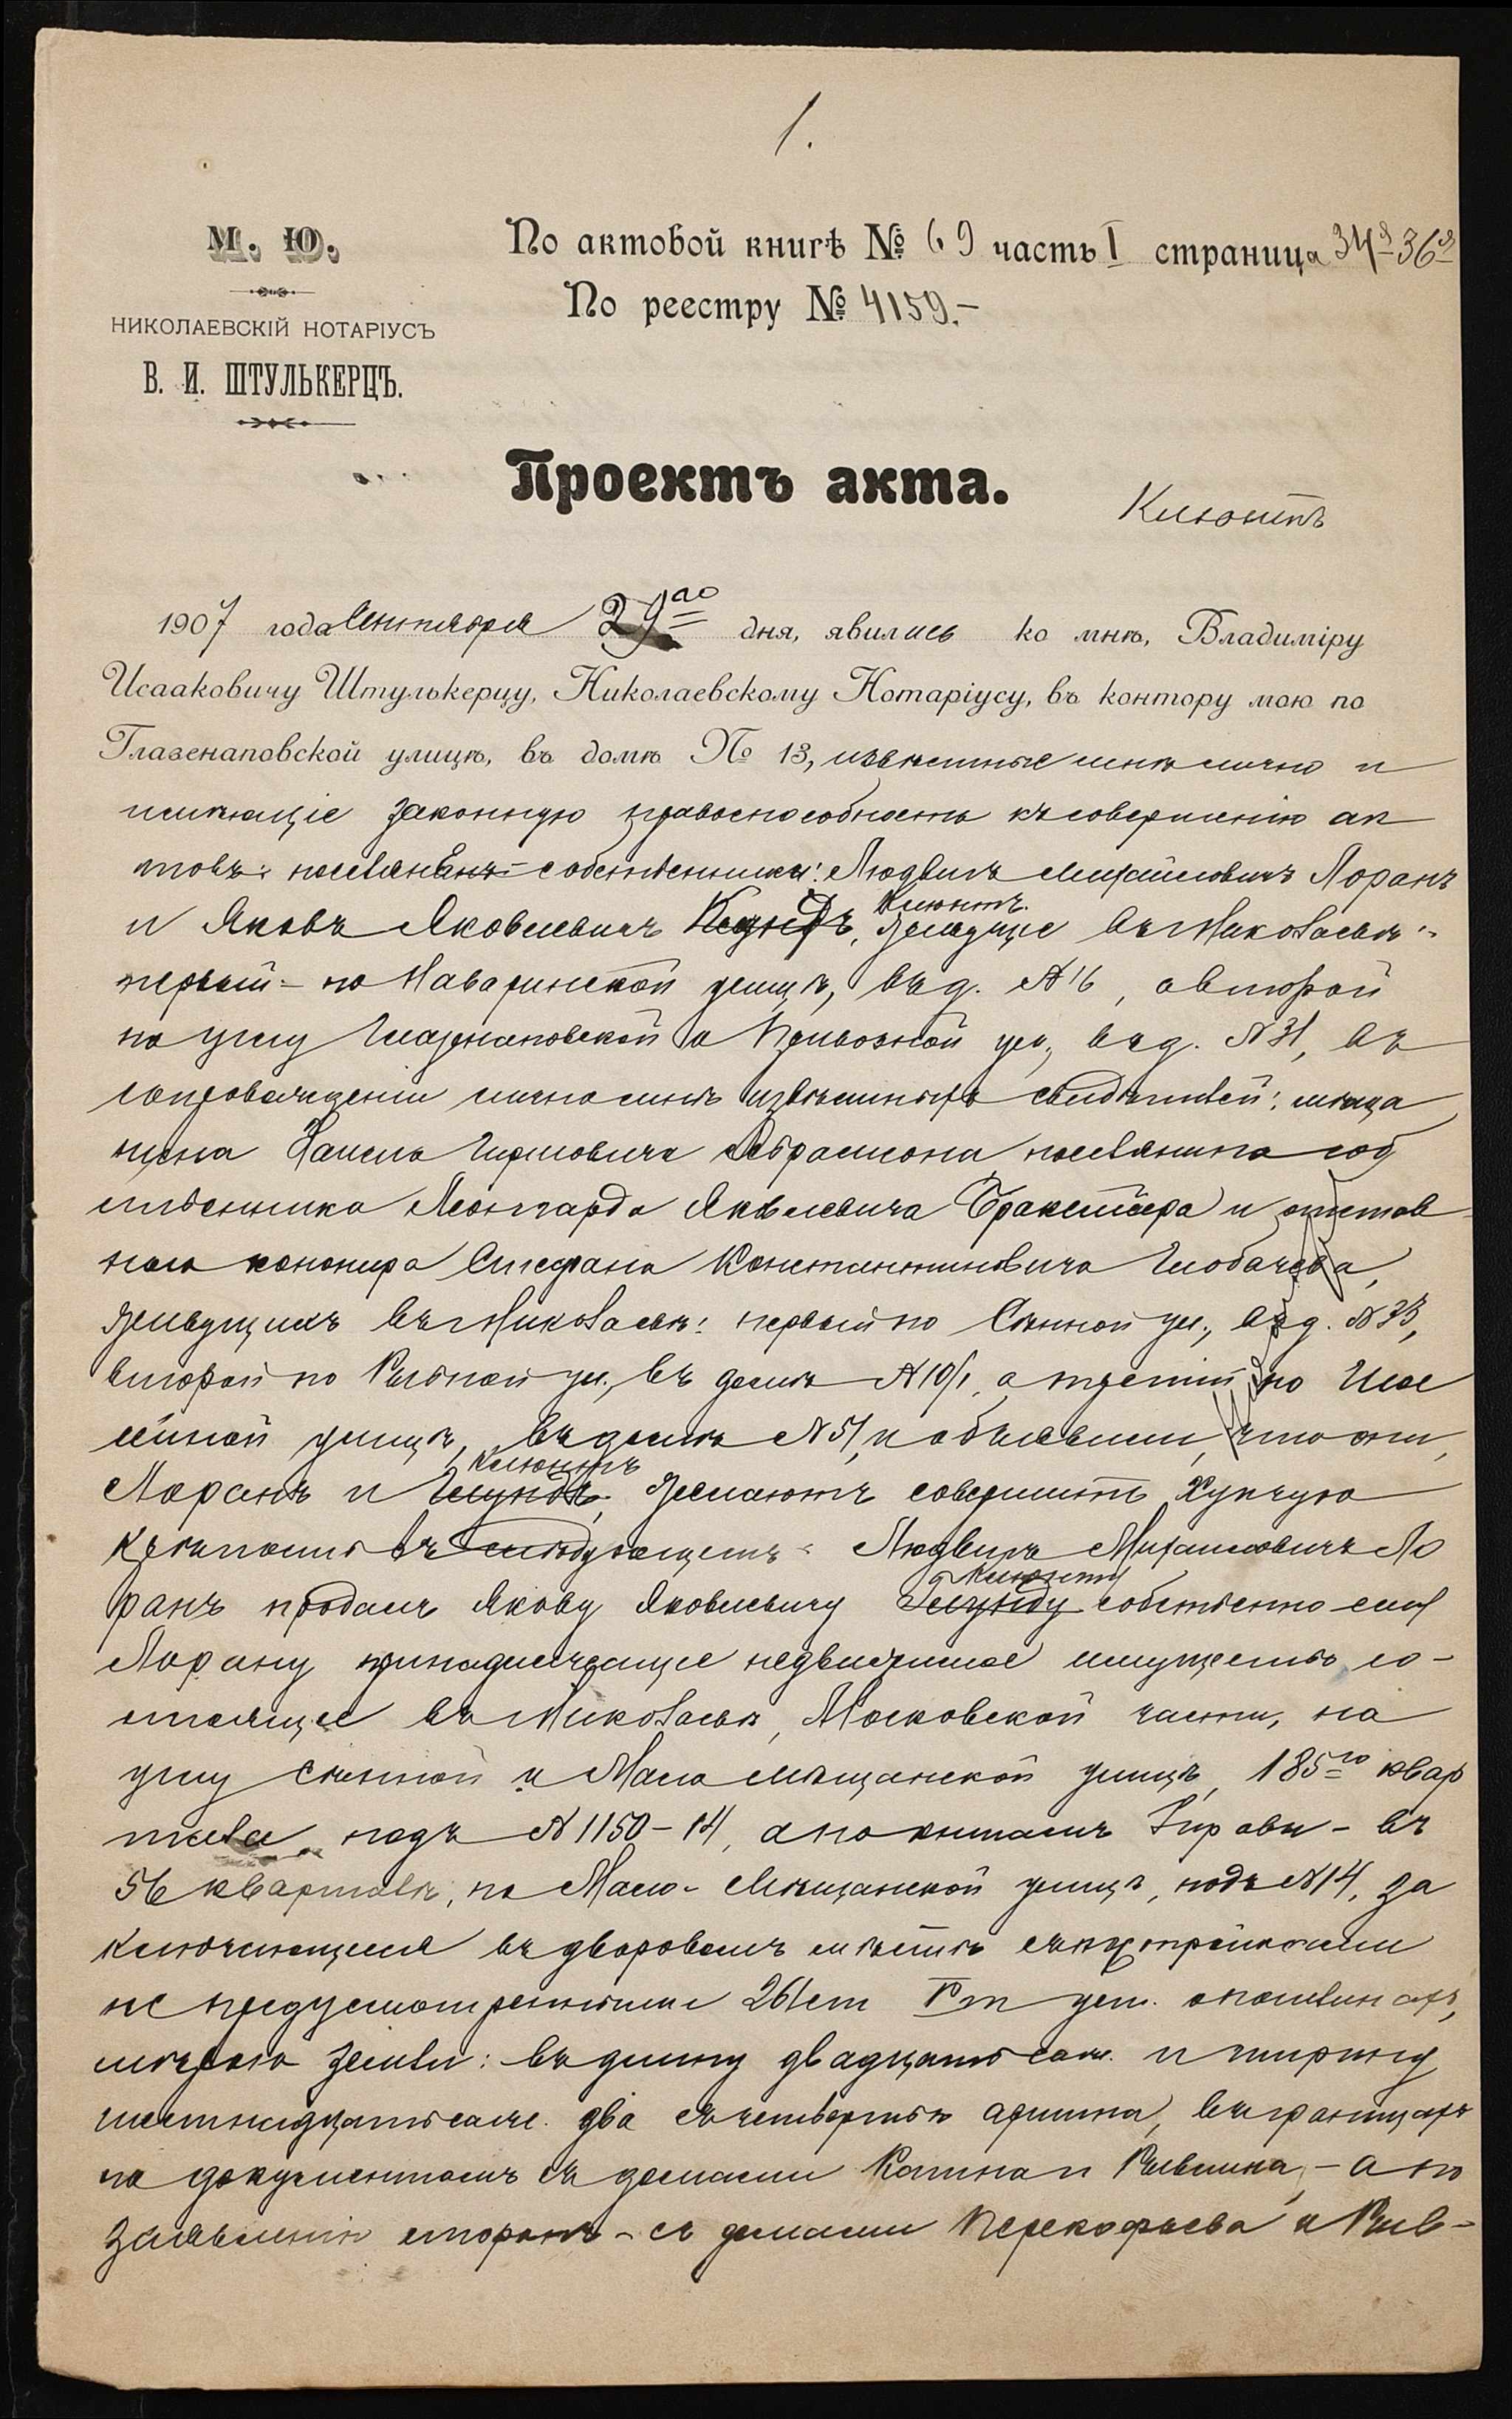 1.
М. Ю.
НИКОЛАЕВСКІЙ НОТАРІУСЪ
В. И. ШТУЛЬКЕРЦЪ.
По актовой книгѣ № 69 часть I страница 34я-36я
По реестру № 4159.-
Проектъ акта.
Клюнтъ
1907 года Сентября 29го дня, явились ко мнѣ, Владиміру
Исааковичу Штулькерцу, Николаевскому Нотаріусу, въ контору мою по
Глазенаповской улицѣ, въ домѣ № 13, извѣстные мнѣ лично и
имѣющіе законную правоспособность къ совершенію ак
товъ: собственники: Людвигъ Михайловичъ Лоранъ
Клюнтъ.
и Яковъ Яковлевичъ живущіе въ Николаевѣ:
первый - по Наваринской улицѣ, въ д. № 16, а второй
на углу Глазенаповской и Привозной ул., въ д. № 31, въ
сопровожденіи лично мнѣ извѣстныхъ свидѣтелей: мѣща
нина Абрамсона поселянина соб
ственника Леонгарда Яковлевича и отстав
ного канонира Стефана Константиновича Глобачева,
живущихъ въ Николаевѣ: первый по Сѣнной ул., въ д. № 33,
второй по Рыбной ул., въ домѣ № 10/1, а третій по
улицѣ, въ домѣ № 51, и объявили, что они,
Клюнтъ
Лоранъ и желаютъ совершить купчую
крѣпость въ слѣдующемъ: Людвигъ Михайловичъ Ло
Клюнту
ранъ продалъ Якову Яковлевичу собственно ему
Лорану принадлежащее недвижимое имущество, со-
стоящее въ Николаевѣ, Московской части, на
углу Сѣнной и Мало Мѣщанской улицъ, 185го квар
тала, подъ № 1150-14, а по книгамъ Управы - въ
56 кварталѣ, по Мало-Мѣщанской улицѣ, подъ № 14, за
ключающееся въ дворовомъ мѣстѣ съ постройками
не предусмотренными 261 ст
мѣрою земли: въ длину двадцать саж. и ширину
шестнадцать саж. два съ четвертью аршина, въ границахъ
по документамъ съ домами Катина и Рывлина, - а по
заявленію сторонъ - съ домами Перекофьева и Рыв-